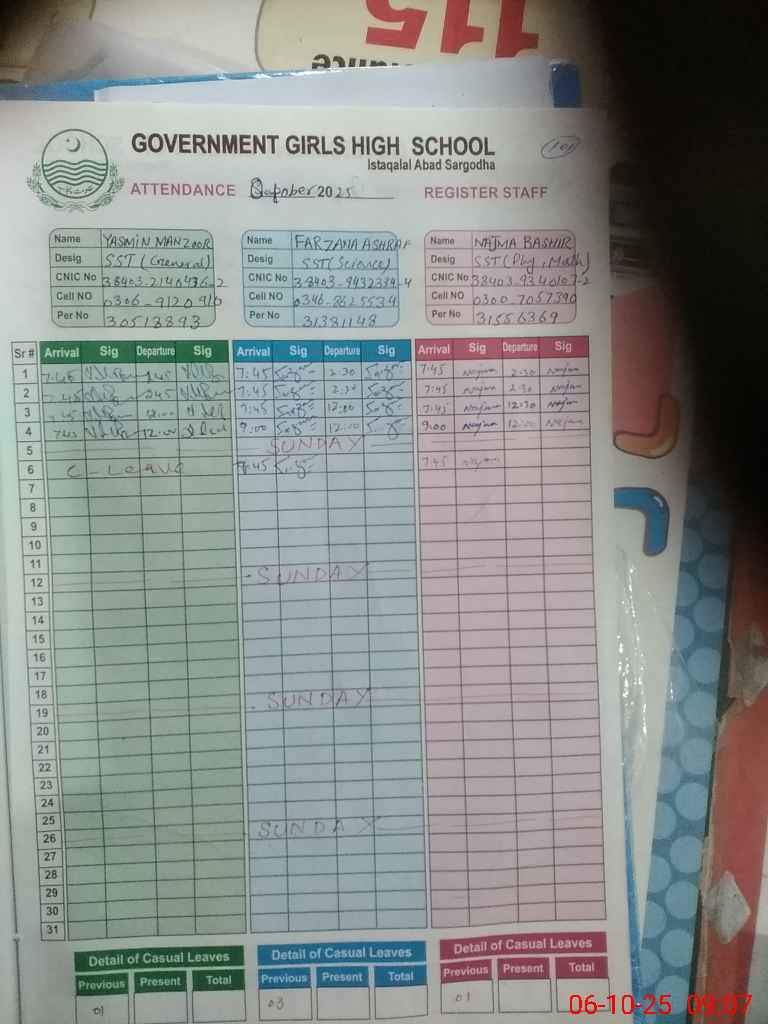 115
GOVERNMENT GIRLS HIGH SCHOOL
101
Istaqalal Abad Sargodha
ATTENDANCE October 2025 REGISTER STAFF
Name YASMIN MANZOOR Name FARZANA ASHRAF Name NAJMA BASHIR
Desig SST (General) Desig SST (Science) Desig SST (Phy, Math)
CNIC No 38403-2140436-2 CNIC No 38403-9432334-4 CNIC No 38403-9340107-2
Cell NO 0306-9120910 Cell NO 0346-8625534 Cell NO 0300-7057390
Per No 30513893 Per No 31381148 Per No 31556369
Sr # Arrival Sig Departure Sig Arrival Sig Departure Sig Arrival Sig Departure Sig
1 7:45 2:45 7:45 2:30 7:45 Najma 2:30 Najma
2 7:45 2:45 7:45 2:30 7:45 Najma 2:30 Najma
3 7:45 12:00 7:45 12:00 7:45 Najma 12:30 Najma
4 7:45 12:00 9:00 12:00 9:00 Najma 12:00 Najma
5 SUNDAY
6 C-Leave 7:45 7:45 Najma
7
8
9
10
11
12 SUNDAY
13
14
15
16
17
18
19 SUNDAY
20
21
22
23
24
25
26 SUNDAY
27
28
29
30
31
Detail of Casual Leaves Detail of Casual Leaves Detail of Casual Leaves
Previous Present Total Previous Present Total Previous Present Total
01 03 01
06-10-25 09:07